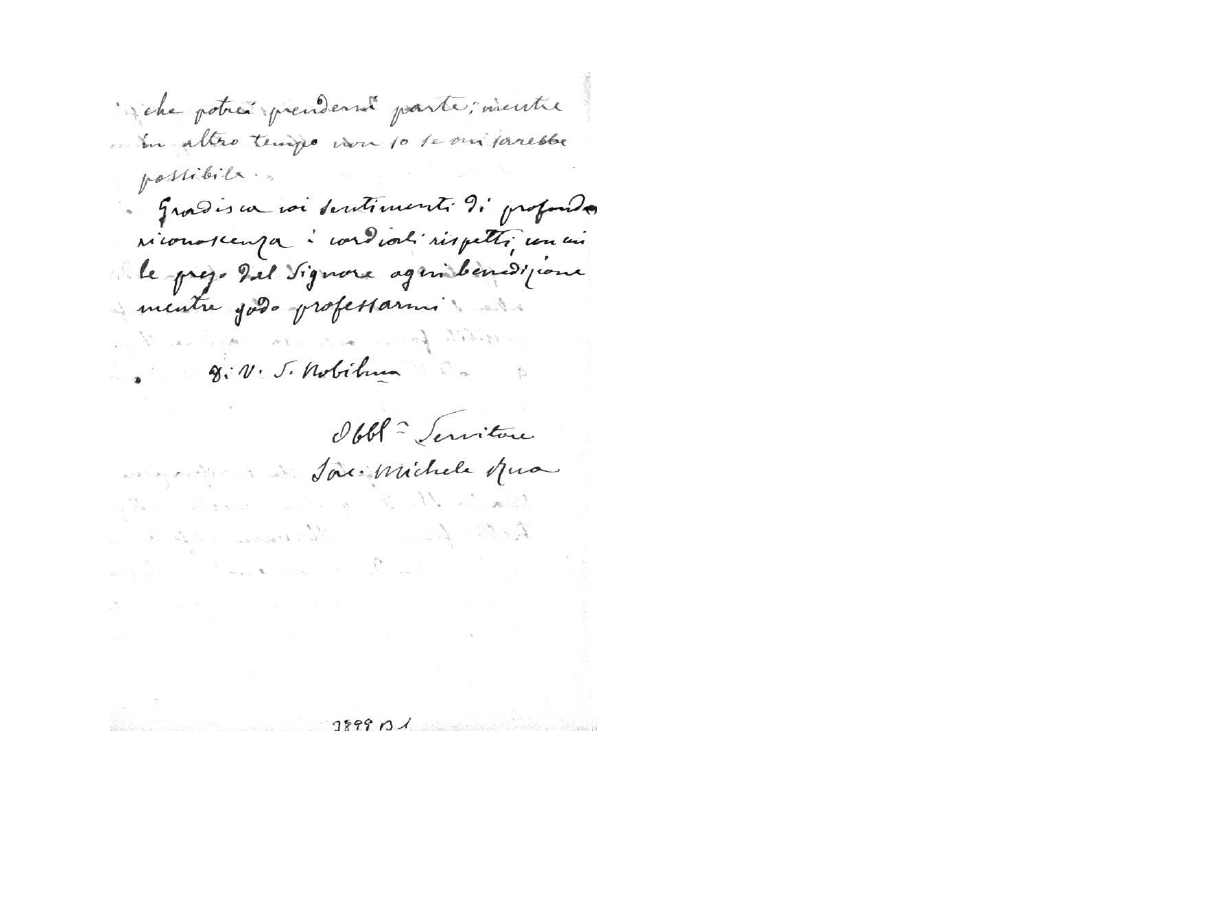 che potrei prendervi parte; mentre
in altro tempo non so se mi sarebbe
possibile.
Gradisca coi sentimenti di profonda
riconoscenza i cordiali rispetti, con cui
le prego dal Signore ogni benedizione
mentre godo professarmi
Di V. S. Nobilma
Obbl Servitore
Sac. Michele Rua
3899 B 1